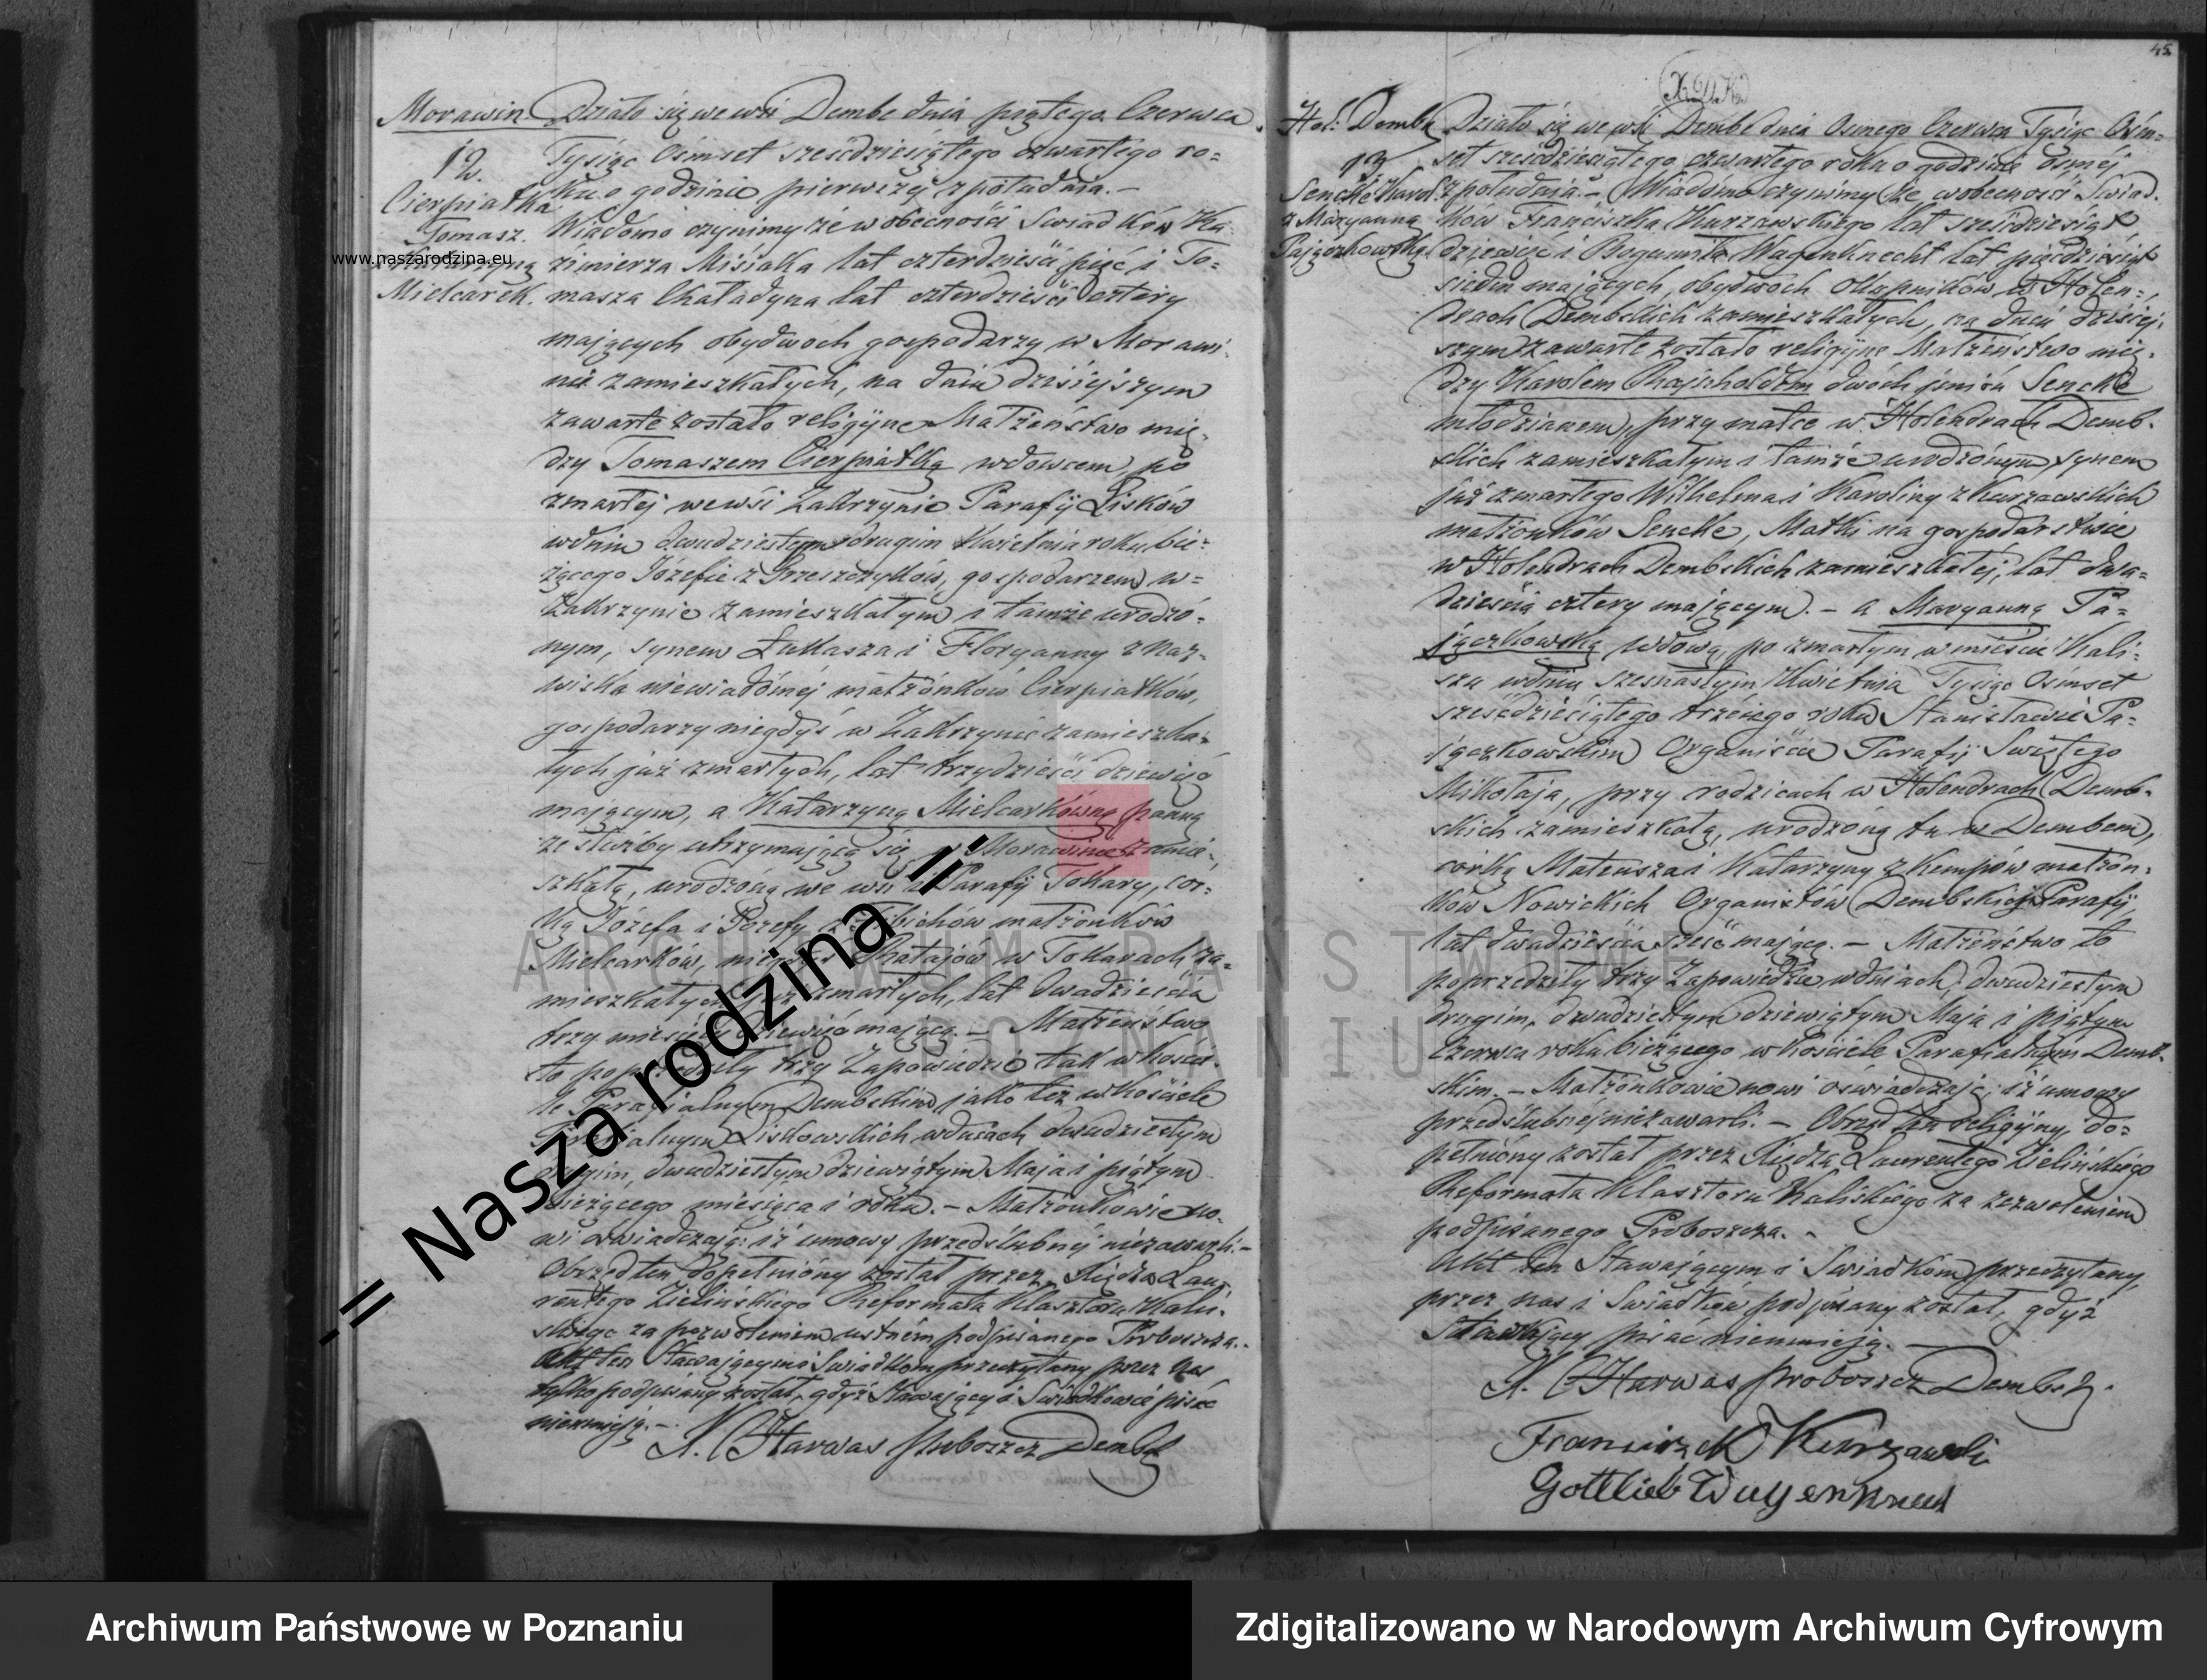 45
Morawin
12.
Cierpiatka
Tomasz.
z Katarzyną
Mielcarek.
Działo się we wsi Dembe dnia piątego Czerwca
Tysiąc Ośmset sześdziesiątego czwartego ro=
ku o godzinie pierwszej z południa. –
Wiadomo czynimy że w obecności Swiadków Ka=
zimierza Misiaka lat czterdzieści pięć i To=
masza Chaładyna lat czterdzieści cztery
mających obydwóch gospodarzy w Morawi=
nie zamieszkałych, na dniu dzisiejszym
zawarte zostało religijne Małżeństwo mię=
dzy Tomaszem Cierpiatką wdowcem, po
zmarłej we wsi Zakrzynie Parafij Lisków
w dniu dwudziestym drugim Kwietnia roku bie=
żącego Józefie z Grzeszczyków, gospodarzem w=
Zakrzynie zamieszkałym i tamże urodzo=
nym, synem Łukasza i Floryanny z naz=
wiska niewiadomej małżonków Cierpiatków,
gospodarzy niegdyś w Zakrzynie zamieszka=
łych już zmarłych, lat trzydzieści dziewięć
mającym, a Katarzyną Mielcarkówną panną
ze służby utrzymującą się w Morawinie zamie=
szkałą, urodzoną we wsi i Parafij Tokary, cór=
ką Józefa i Józefy małżonków
Mielcarków, niegdyś Ratajów w Tokarach za=
mieszkałych już zmarłych, lat dwadzieścia
trzy miesięcy dziewięć mającą. – Małżeństwo
to poprzedziły trzy Zapowiedzie tak w kościę=
le Parafialnym Dembskim jako też w kościele
Parafialnym Liskowskich w dniach dwudziestym
drugim, dwudziestym dziewiątym Maja i piątym
bieżącego miesiąca i roku. – Małżonkowie no=
wi oświadczają: iż umowy przedślubnej niezawarli. –
Obrzęd ten dopełniony został przez Xiędza Lau=
rentego Zielińskiego Reformata Klasztoru Kali=
skiego za pozwoleniem ustnem podpisanego Proboszcza. –
Akt ten Stawającym i Swiadkom przeczytany przez nas
tylko podpisany został, gdyż Stawający i Swiadkowie pisać
nieumieją. –
X. Harwas Proboszcz Dembski
Hol: Demby
13
Sencke Karol
z Maryanną
Pajączkowską
Działo się we wsi Dembe dnia Osmego Czerwca Tysiąc Ośm=
set sześdziesiątego czwartego roku o godzinie ósmej
z południa. – Wiadomo czynimy że w obecności Swiad=
ków Franciszka Kurzawskiego lat sześdziesiąt
dziewięć i Bogumiła Wagenknecht lat pięćdziesiąt
siedm mających, obydwóch Okupników w Holen=
drach Dembskich zamieszkałych, na dniu dzisiej=
szym zawarte zostało religijne Małżeństwo mię=
dzy Karolem Rajnholdem dwóch imion Sencke
młodzianem, przy matce w Holendrach Demb=
skich zamieszkałym i tamże urodzonym synem
już zmarłego Wilhelma i Karoliny z Kurzawskich
małżonków Sencke, Matki na gospodarstwie
w Holendrach Dembskich zamieszkałej, lat dwa=
dzieścia cztery mającym. – a Maryanną Pa=
jączkowską wdową, po zmarłym w mieście Kali=
szu w dniu szesnastym Kwietnia Tysiąc Ośmset
sześdziesiątego trzeciego roku Stanisławie Pa=
jączkowskim Organiście Parafij Swiętego
Mikołaja, przy rodzicach w Holendrach Demb=
skich zamieszkałą, urodzoną tu w Dembem,
córką Mateusza i Katarzyny z Kempów małżon=
ków Nowickich Organistów Dembskiej Parafij,
lat dwadzieścia sześć mającą. – Małżeństwo to
poprzedziły trzy Zapowiedzie w dniach, dwudziestym
drugim, dwudziestym dziewiątym Maja i piątym
Czerwca roku bieżącego w kościele Parafialnym Demb=
skim. – Małżonkowie nowi oświadczają; iż umowy
przedślubnej niezawarli. – Obrzęd ten religijny do=
pełniony został przez Xiędza Laurentego Zielińskiego
Reformata Klasztoru Kaliskiego za zezwoleniem
podpisanego Proboszcza. –
Akt ten Stawającym i Swiadkom przeczytany,
przez nas i Swiadków podpisany został, gdyż
Stawający pisać nieumieją. –
X. Harwas Proboszcz Dembski.
Franciszek Kurzawski
Gottlieb Wagenknecht
www.naszarodzina.eu
-= Nasza rodzina =-
ARCHIWUM PAŃSTWOWE
W POZNANIU
Archiwum Państwowe w Poznaniu
Zdigitalizowano w Narodowym Archiwum Cyfrowym